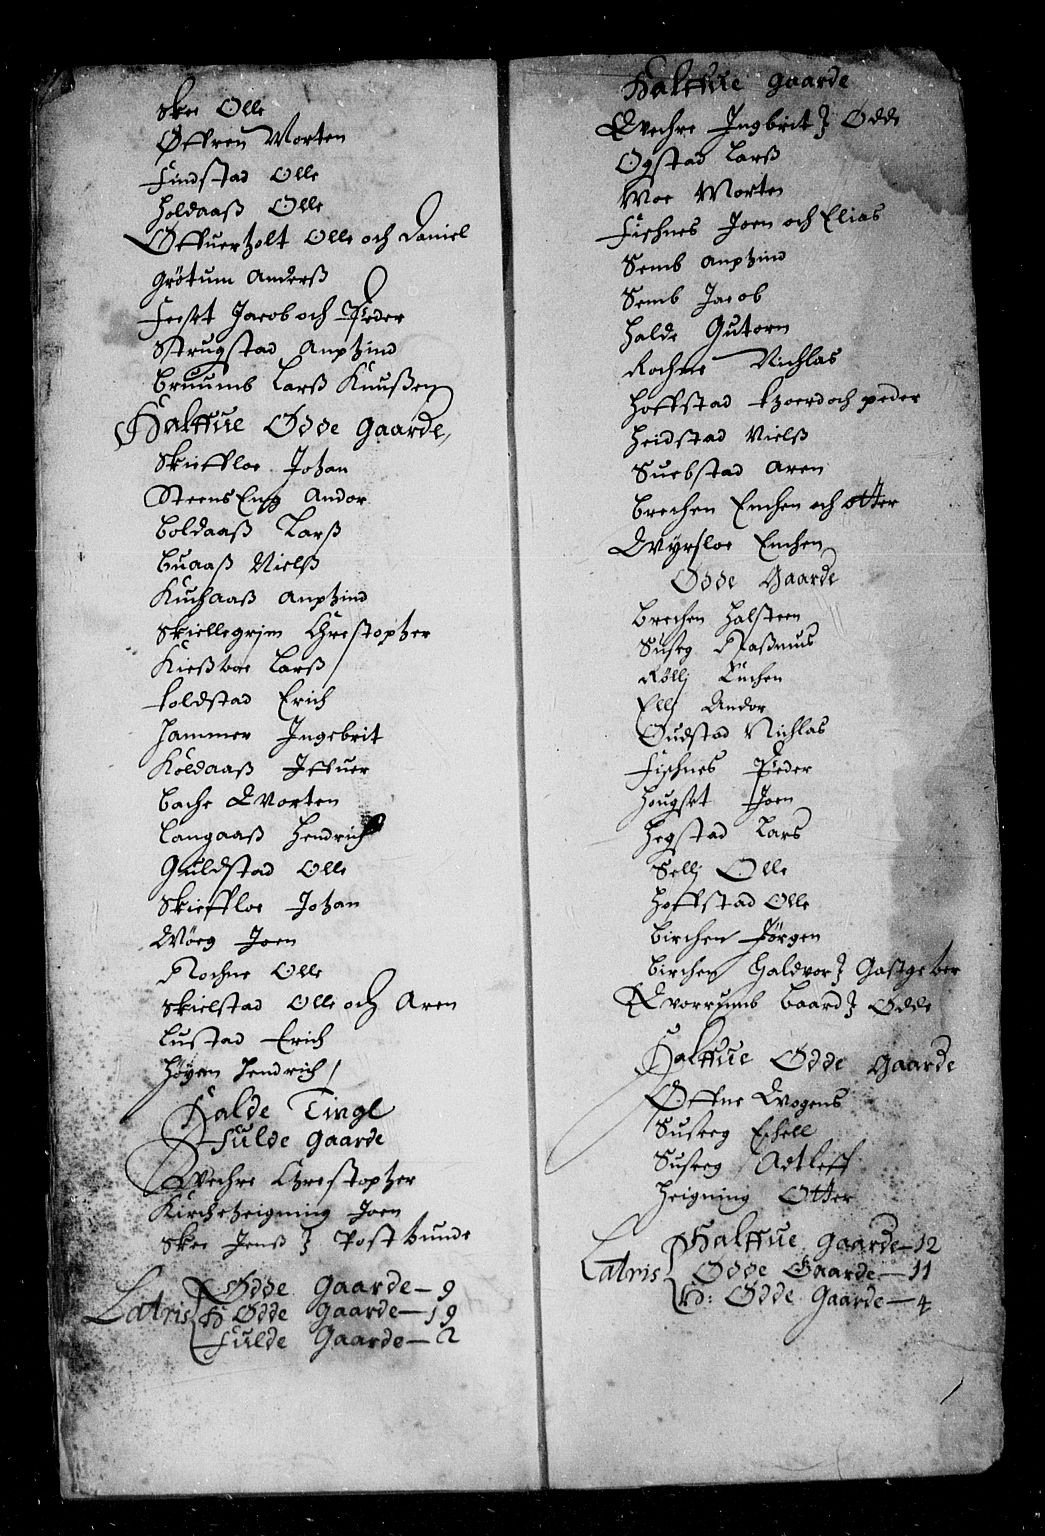 Skee Olle
Øffren Morten
Findstad Olle
Holdaaß Olle
Offuerholt Olle och Daniel
Grötum Anderß
Feest Jacob och Peder
Strugstad Anphind
Bruumb Larß Knußen
Halffue Øde Gaarde
Skieffloe Johan
Steens Eng Andor
Boldaaß Larß
Buaaß Nielß
Kuchaaß Anphind
Skiellegrjm Chrestopher
Kießboe Larß
Foldstad Erich
Hammer Ingebrit
Koldaaß Iffuer
Bache Morten
Langaaß Hendrich
Guldstad Olle
Skieffloe Johan
Joen
Rochne Olle
Skielstad Olle och Aren
Lustad Erich
Høyen Hendrich
Halde Tingl
Fulde Gaarde
Wechre Chrestopher
Kircheheigning Joen
Skee Jenß Post bunde
Latris
Ødde Gaarde - 9
H Ødde Gaarde - 19
Fulde Gaarde - 2
Halffue Gaarde
Wechre Ingbrit Ødde
Ogstad Larß
Moe Morten
Fischnes Joen och Elias
Semb Anphind
Semb Jacob
Halde Gutorn
Rochne Nichlas
Hoffstad och Peder
Heidstad Nielß
Suebstad Aren
Brechen Enchen och Otter
Wyrsloe Enchen
Ødde Gaarde
Brechen Halsteen
Susteg Raßmus
Röllj Enchen
Ellj Andor
Gudstad Nichlas
Fischnes Peder
Hougst Joen
Hegstad Lars
Sellj Olle
Hoffstad Olle
Birchen Jörgen
Birchen Haldvor Gastgeber
Morrumb Baard Ødde
Halffue Ødde Gaarde
Øffne Mogens
Susteg Eschell
Susteg Adtleff
Heigning Otter
Latris
Halffue Gaarde - 12
Ødde Gaarde - 11
H: Ødde Gaarde - 4